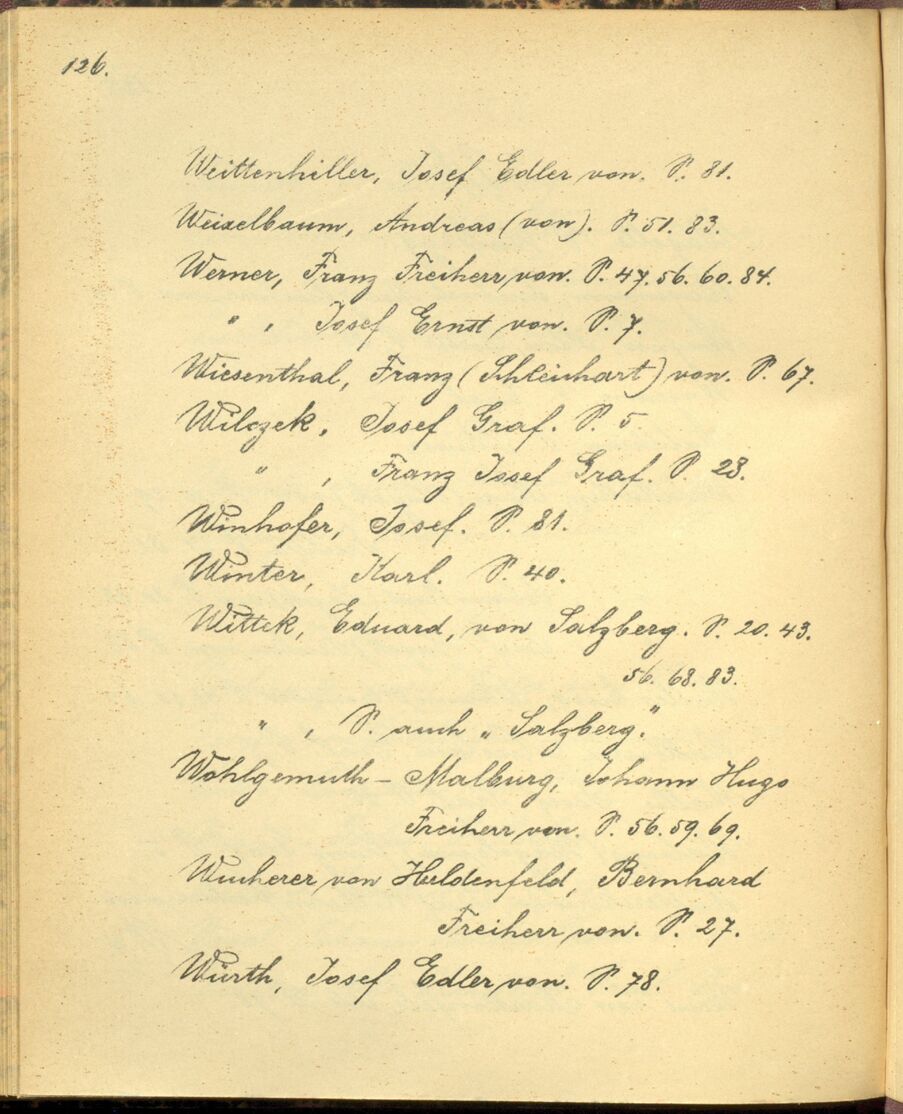 126.
Weittenhiller, Josef Edler von. S. 81.
Weixelbaum, Andreas (von). S. 51. 83.
Werner, Franz Freiherr von. S. 47. 56. 60. 84.
" , Josef Ernst von. S. 7.
Wiesenthal, Franz (Schleichart) von. S. 67.
Wilczek, Josef Graf. S. 5
" , Franz Josef Graf. S. 23.
Winhofer, Josef. S. 81.
Winter, Karl. S. 40.
Wittek, Eduard, von Salzberg. S. 20. 43.
56. 68. 83.
" , S. auch „Salzberg."
Wohlgemuth - Malburg, Johann Hugo
Freiherr von. S. 56. 59. 69.
Wucherer von Huldenfeld, Bernhard
Freiherr von. S. 27.
Würth, Josef Edler von. S. 78.